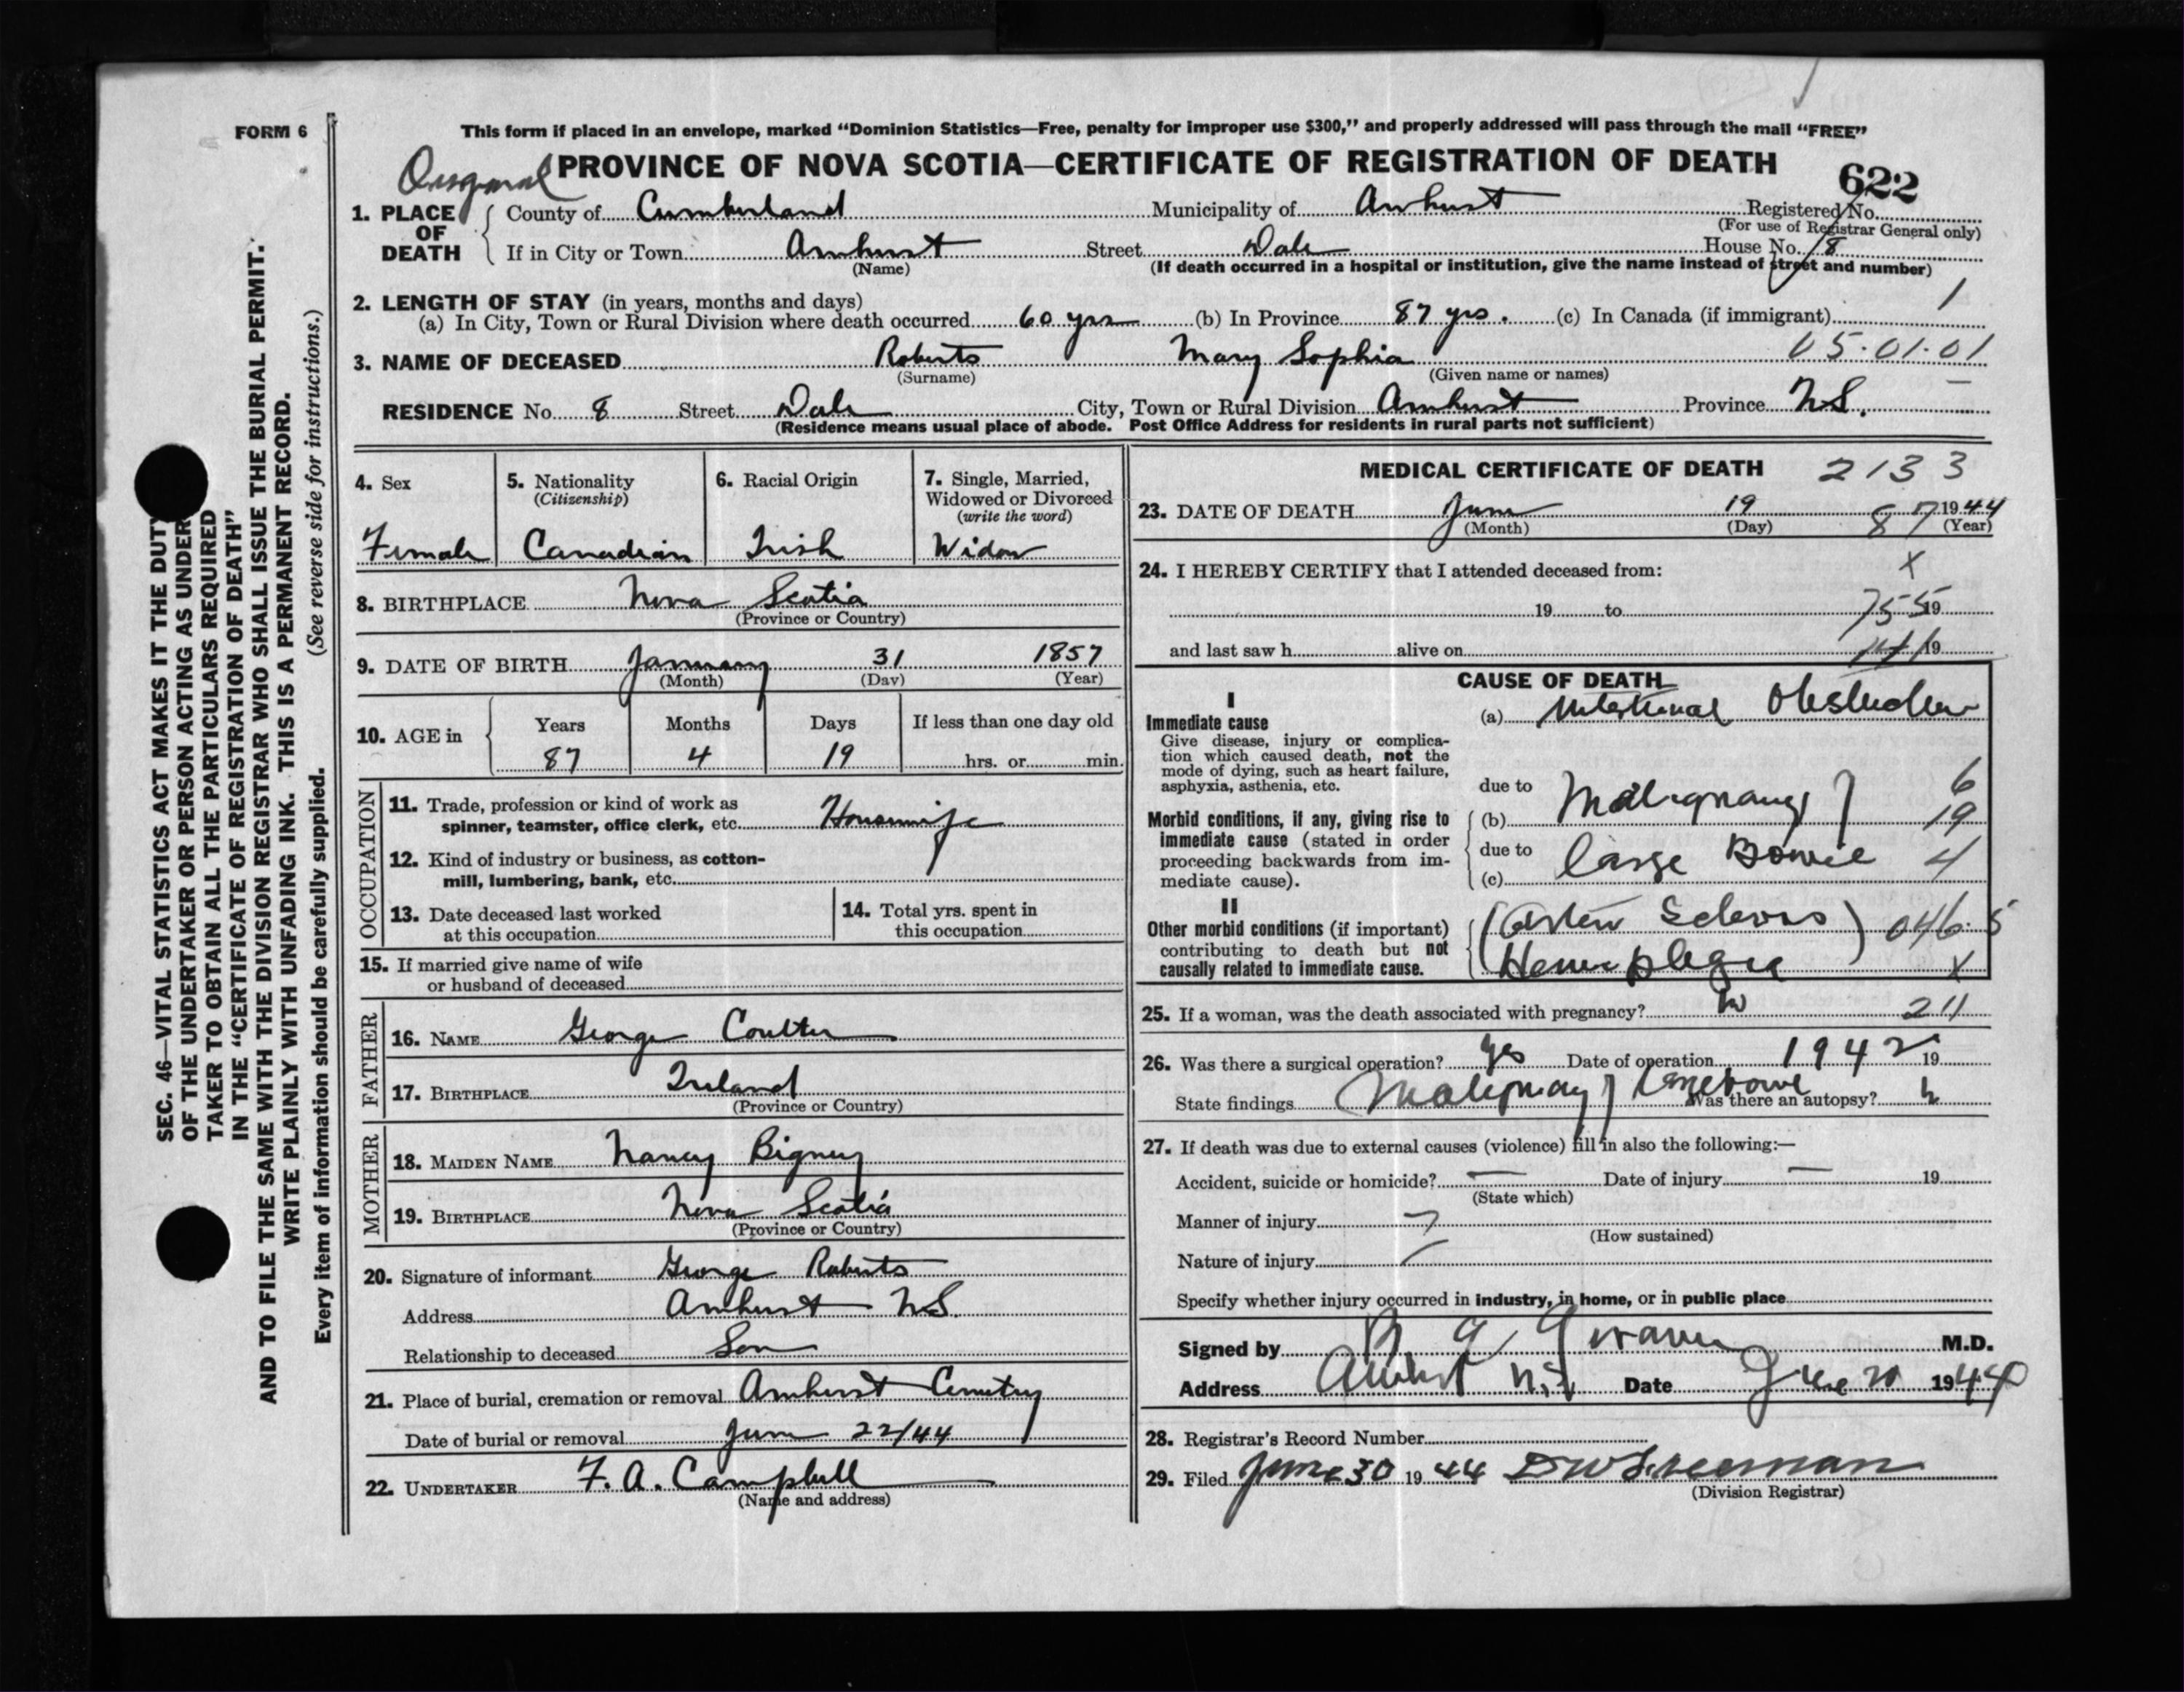 FORM 6
This form if placed in an envelope, marked "Dominion Statistics—Free, penalty for improper use $300," and properly addressed will pass through the mail "FREE"
Original PROVINCE OF NOVA SCOTIA—CERTIFICATE OF REGISTRATION OF DEATH
622
1. PLACE OF DEATH
County of Cumberland Municipality of Amherst Registered No.
(For use of Registrar General only)
If in City or Town Amherst Street Dale House No. 8
(Name) (If death occurred in a hospital or institution, give the name instead of street and number)
2. LENGTH OF STAY (in years, months and days) 1
(a) In City, Town or Rural Division where death occurred 60 yrs (b) In Province 87 yrs. (c) In Canada (if immigrant)
3. NAME OF DECEASED Roberts Mary Sophia 05.01.01
(Surname) (Given name or names)
RESIDENCE No. 8 Street Dale City, Town or Rural Division Amherst Province N.S.
(Residence means usual place of abode. Post Office Address for residents in rural parts not sufficient)
4. Sex
Female
5. Nationality
(Citizenship)
Canadian
6. Racial Origin
Irish
7. Single, Married,
Widowed or Divorced
(write the word)
Widow
8. BIRTHPLACE Nova Scotia
(Province or Country)
9. DATE OF BIRTH January 31 1857
(Month) (Day) (Year)
10. AGE in
Years Months Days If less than one day old
87 4 19 hrs. or min.
OCCUPATION
11. Trade, profession or kind of work as
spinner, teamster, office clerk, etc. Housewife
12. Kind of industry or business, as cotton-
mill, lumbering, bank, etc.
13. Date deceased last worked
at this occupation
14. Total yrs. spent in
this occupation
15. If married give name of wife
or husband of deceased
FATHER
16. NAME George Coulter
17. BIRTHPLACE Ireland
(Province or Country)
MOTHER
18. MAIDEN NAME Nancy Bigney
19. BIRTHPLACE Nova Scotia
(Province or Country)
20. Signature of informant George Roberts
Address Amherst N.S.
Relationship to deceased Son
21. Place of burial, cremation or removal Amherst Cemetery
Date of burial or removal June 22/44
22. UNDERTAKER F. A. Campbell
(Name and address)
MEDICAL CERTIFICATE OF DEATH 2133
23. DATE OF DEATH June 19 1944
(Month) (Day) 87 (Year)
24. I HEREBY CERTIFY that I attended deceased from: X
19 to 755 19
and last saw h alive on 19
CAUSE OF DEATH
I
Immediate cause
Give disease, injury or complica-
tion which caused death, not the
mode of dying, such as heart failure,
asphyxia, asthenia, etc.
(a) Intestinal Obstruction
due to
Morbid conditions, if any, giving rise to
immediate cause (stated in order
proceeding backwards from im-
mediate cause).
(b) Malignancy of
due to
(c) Large Bowel
6
19
4
II
Other morbid conditions (if important)
contributing to death but not
causally related to immediate cause.
(Arterio Sclerosis) 046.5
Hemiplegia X
25. If a woman, was the death associated with pregnancy? No 211
26. Was there a surgical operation? Yes Date of operation 1942 19
State findings Malignancy of Large bowel Was there an autopsy?
27. If death was due to external causes (violence) fill in also the following:—
Accident, suicide or homicide? — Date of injury — 19
(State which)
Manner of injury
(How sustained)
Nature of injury
Specify whether injury occurred in industry, in home, or in public place
Signed by M.D.
Address Amherst N.S. Date June 20 1944
28. Registrar's Record Number
29. Filed June 30 1944
(Division Registrar)
SEC. 46—VITAL STATISTICS ACT MAKES IT THE DUTY
OF THE UNDERTAKER OR PERSON ACTING AS UNDER
TAKER TO OBTAIN ALL THE PARTICULARS REQUIRED
IN THE "CERTIFICATE OF REGISTRATION OF DEATH"
AND TO FILE THE SAME WITH THE DIVISION REGISTRAR WHO SHALL ISSUE THE BURIAL PERMIT.
WRITE PLAINLY WITH UNFADING INK. THIS IS A PERMANENT RECORD.
Every item of information should be carefully supplied. (See reverse side for instructions.)